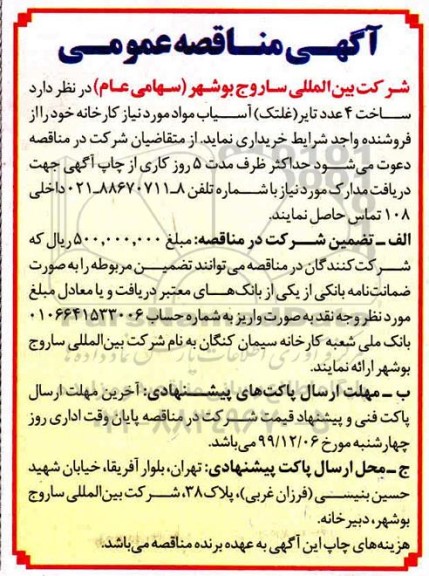 آگهـی منـاقصه عمومـی
شرکت بین‌المللی ساروج بوشهر (سهامی عـام) در نظر دارد
ساخت ۴ عدد تایر (غلتک) آسیاب مواد مورد نیاز کارخانه خود را از
فروشنده واجد شرایط خریداری نماید. از متقاضیان شرکت در مناقصه
دعوت می‌شود حداکثر ظرف مدت ۵ روز کاری از چاپ آگهی جهت
دریافت مدارک مورد نیاز با شماره تلفن ۸ـ۸۸۶۷۰۷۱۱ـ۰۲۱ داخلی
۱۰۸ تماس حاصل نمایند.
الف ـ تضمین شرکت در مناقصه: مبلغ ۵۰۰,۰۰۰,۰۰۰ ریال که
شرکت‌کنندگان در مناقصه می‌توانند تضمین مربوطه را به صورت
ضمانت‌نامه بانکی از یکی از بانک‌های معتبر دریافت و یا معادل مبلغ
مورد نظر وجه نقد به صورت واریز به شماره حساب ۰۱۰۶۶۴۱۵۳۳۰۰۶
بانک ملی شعبه کارخانه سیمان کنگان به نام شرکت بین‌المللی ساروج
بوشهر ارائه نمایند.
ب ـ مهلت ارسال پاکت‌های پیشنهادی: آخرین مهلت ارسال
پاکت فنی و پیشنهاد قیمت شرکت در مناقصه پایان وقت اداری روز
چهارشنبه مورخ ۹۹/۱۲/۰۶ می‌باشد.
ج ـ محل ارسال پاکت پیشنهادی: تهران، بلوار آفریقا، خیابان شهید
حسین بنیسی (فرزان غربی)، پلاک ۳۸، شرکت بین‌المللی ساروج
بوشهر، دبیرخانه.
هزینه‌های چاپ این آگهی به عهده برنده مناقصه می‌باشد.